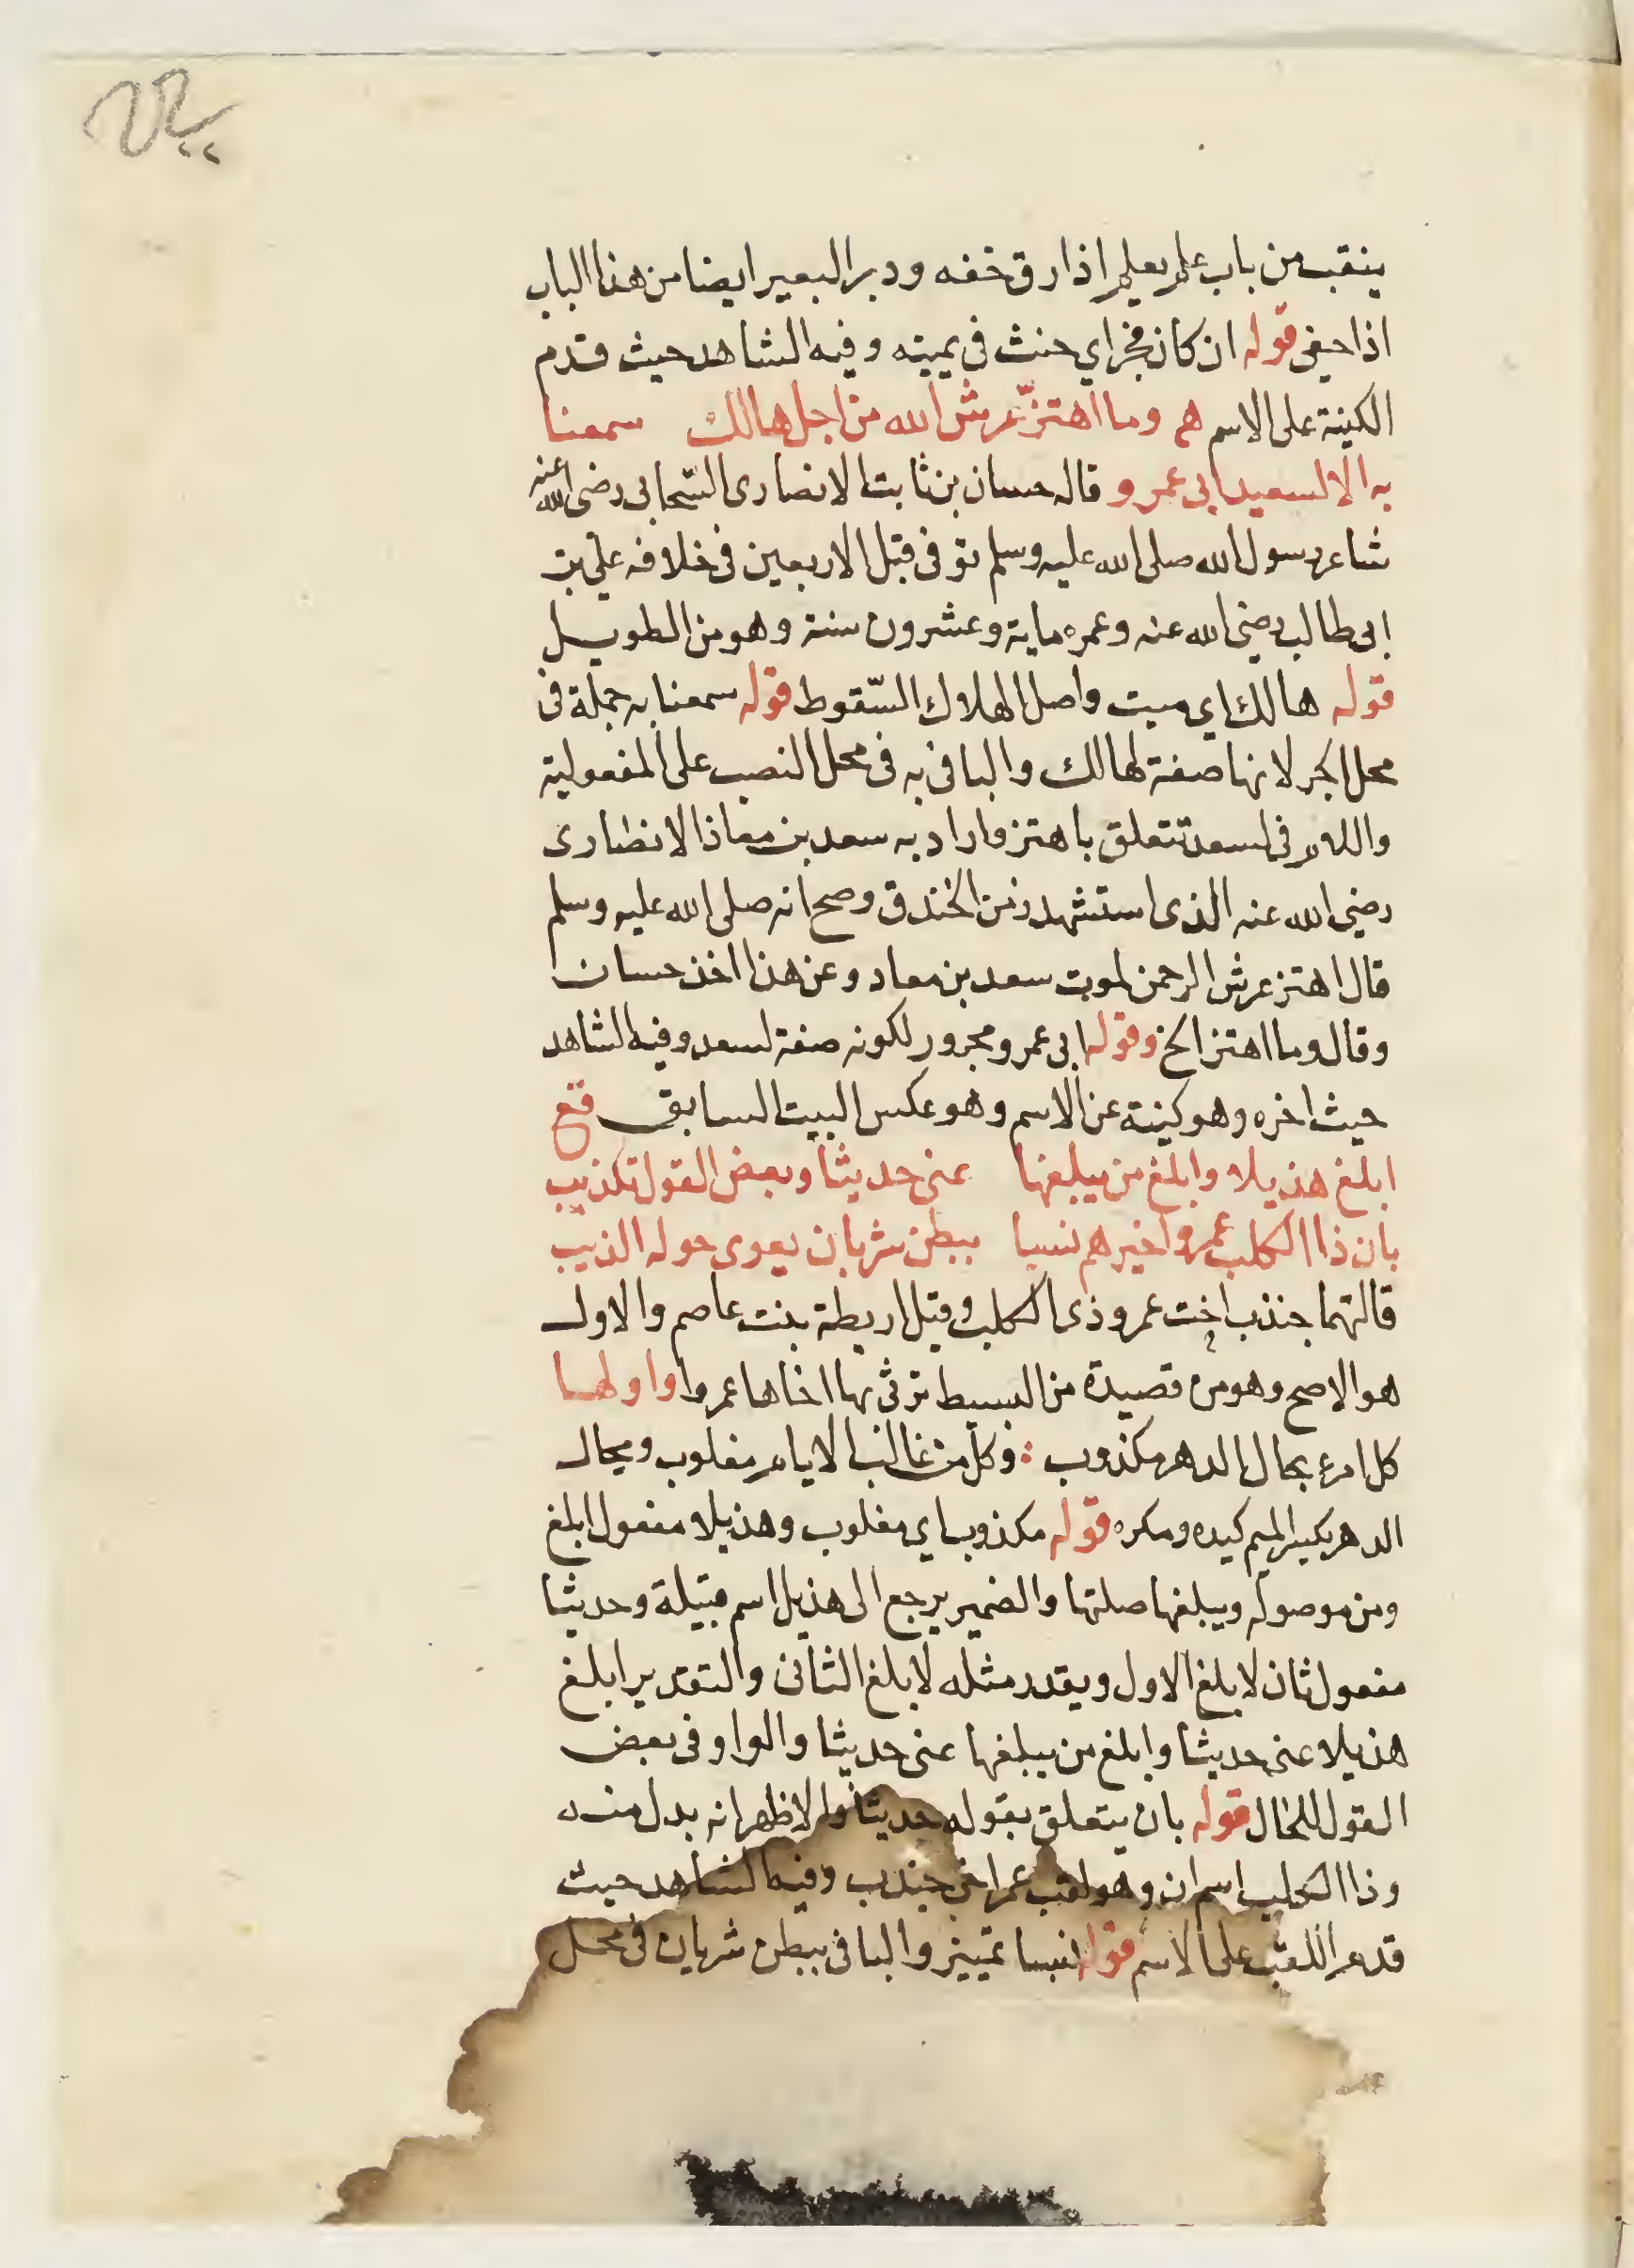 ينقب من باب علم يعلم اذا رق خفه ودبر البعير ايضا من هذا الباب
اذا حفى قوله ان كان فجر اي حنث فى يمينه وفيه الشاهد حيث قدم
الكنية على الاسم هم وما اهتزّ عرش الله من اجل هالك سمعنا
به الا لسعد ابى عمرو قاله حسان بن ثابت الانصارى الصّحابى رضى الله عنه
شاعر رسول الله صلى الله عليه وسلم توفى قبل الاربعين فى خلافه على بن
ابى طالب رضى الله عنه وعمره ماية وعشرون سنة وهو من الطويل
قوله هالك اي ميت واصل الهلاك السّقوط قوله سمعنا به جملة فى
محل الجر لانها صفة لهالك والبا فى به فى محل النصب على المفعولية
واللام فى لسعد تتعلق باهتز واراد به سعد بن معاذ الانصارى
رضى الله عنه الذى استشهد زمن الخندق وصح انه صلى الله عليه وسلم
قال اهتز عرش الرحمن لموت سعد بن معاد وعن هذا اخذ حسان
وقال وما اهتز الخ وقوله ابى عمرو مجرور لكونه صفة لسعد وفيه الشاهد
حيث اخره وهو كنية عن الاسم وهو عكس البيت السابق قع
ابلغ هذيلا وابلغ من يبلغها عنى حديثا وبعض القول تكذيب
بان ذا الكلب عمروا خيرهم نسبا ببطن شريان يعوى حوله الذيب
قالتهما جنذب اخت عمرو ذى الكلب وقيل اريطة بنت عاصم والاول
هو الاصح وهو من قصيدة من البسيط ترثى بها اخاها عمروا واولها
كل امرء بحال الدهر مكذوب : وكل من غالب الايام مغلوب ويحال
الدهر بكسر الميم كيده ومكره قوله مكذوب اي مغلوب وهذيلا مفعول ابلغ
ومن موصوله ويبلغها صلتها والضمير يرجع الى هذيل اسم قبيلة وحديثا
مفعول ثان لابلغ الاول ويقدر مثله لابلغ الثانى والتقدير ابلغ
هذيلا عنى حديثا وابلغ من يبلغها عنى حديثا والواو فى بعض
القول للحال قوله بان يتعلق بقوله حديثا والاظهر انه بدل منه
وذا الكلب اسم ان وهو لقب عمرا خى جنذب وفيه الشاهد حيث
قدم اللقب على الاسم قوله نسبا تمييز والبا فى ببطن شريان فى محل